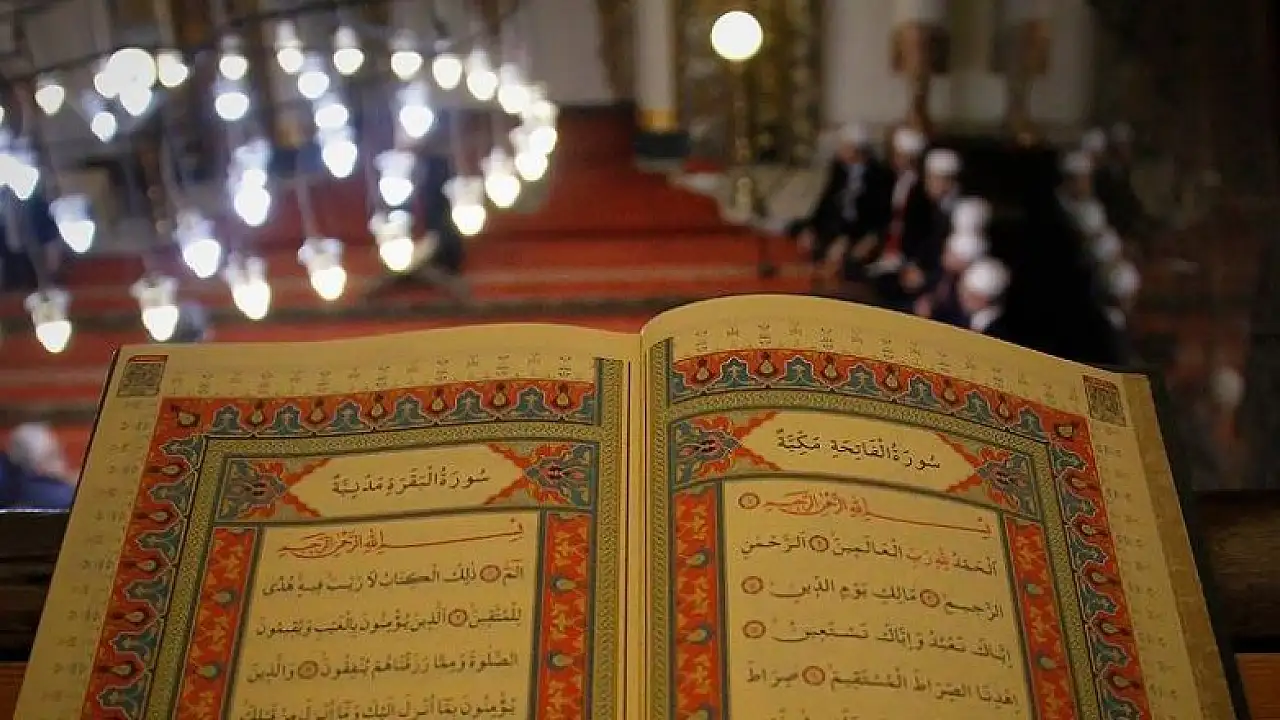 سُورَةُ الْفَاتِحَةِ مَكِّيَّةٌ
بِسْمِ اللّٰهِ الرَّحْمٰنِ الرَّحِيمِ
اَلْحَمْدُ لِلّٰهِ رَبِّ الْعَالَمِينَ ۝ اَلرَّحْمٰنِ
الرَّحِيمِ ۝ مَالِكِ يَوْمِ الدِّينِ ۝
اِيَّاكَ نَعْبُدُ وَاِيَّاكَ نَسْتَعِينُ ۝
اِهْدِنَا الصِّرَاطَ الْمُسْتَقِيمَ ۝ صِرَاطَ
سُورَةُ الْبَقَرَةِ مَدَنِيَّةٌ
بِسْمِ اللّٰهِ الرَّحْمٰنِ الرَّحِيمِ
الٓمٓ ۝ ذٰلِكَ الْكِتَابُ لَا رَيْبَ فِيهِ هُدًى
لِلْمُتَّقِينَ ۝ اَلَّذِينَ يُؤْمِنُونَ بِالْغَيْبِ وَيُقِيمُونَ
الصَّلٰوةَ وَمِمَّا رَزَقْنَاهُمْ يُنْفِقُونَ ۝ وَالَّذِينَ
يُؤْمِنُونَ بِمَا اُنْزِلَ اِلَيْكَ وَمَا اُنْزِلَ مِنْ قَبْلِكَ